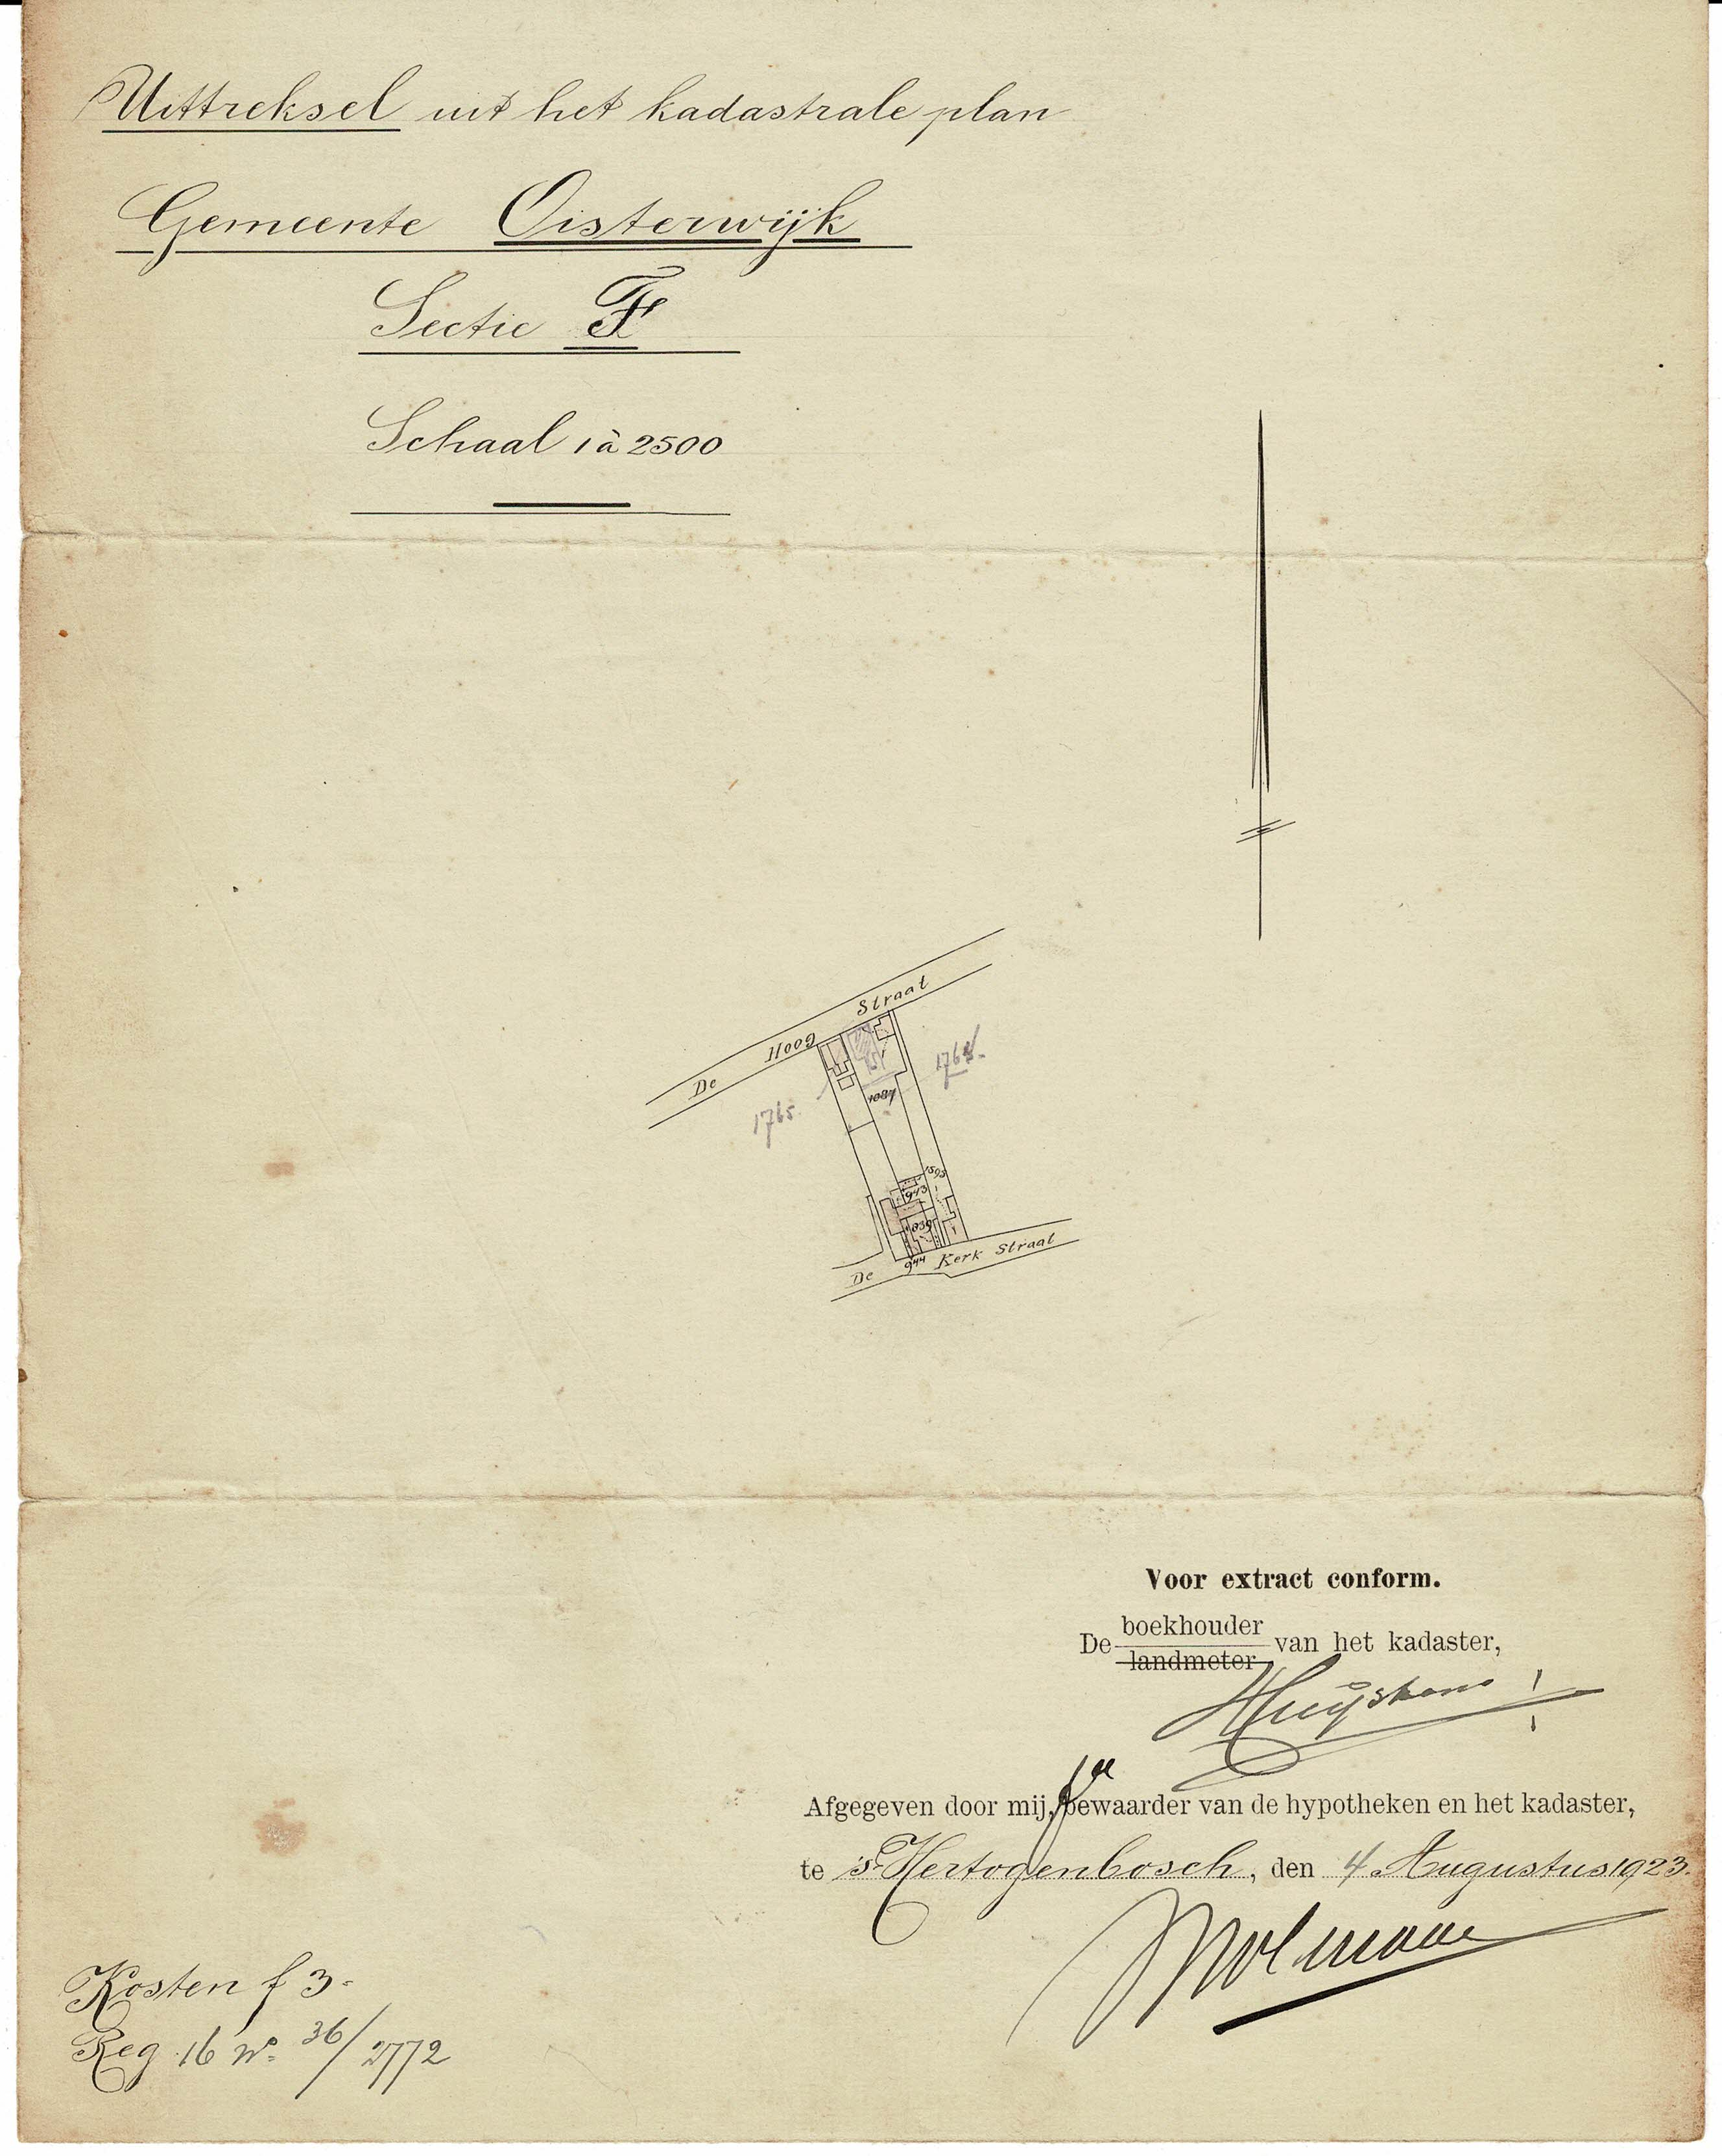 Uittreksel uit het kadastrale plan
Gemeente Oisterwijk
Sectie F
Schaal 1 à 2500
De Hoog Straat
1764
1765.
1084
1595
943
1039
944
De Kerk Straat
Voor extract conform.
De boekhouder
landmeter van het kadaster,
Huijskens
Afgegeven door mij, bewaarder van de hypotheken en het kadaster,
te 's-Hertogenbosch, den 4 Augustus 1923.
Kosten f 3-
Reg 16 No. 36/2772